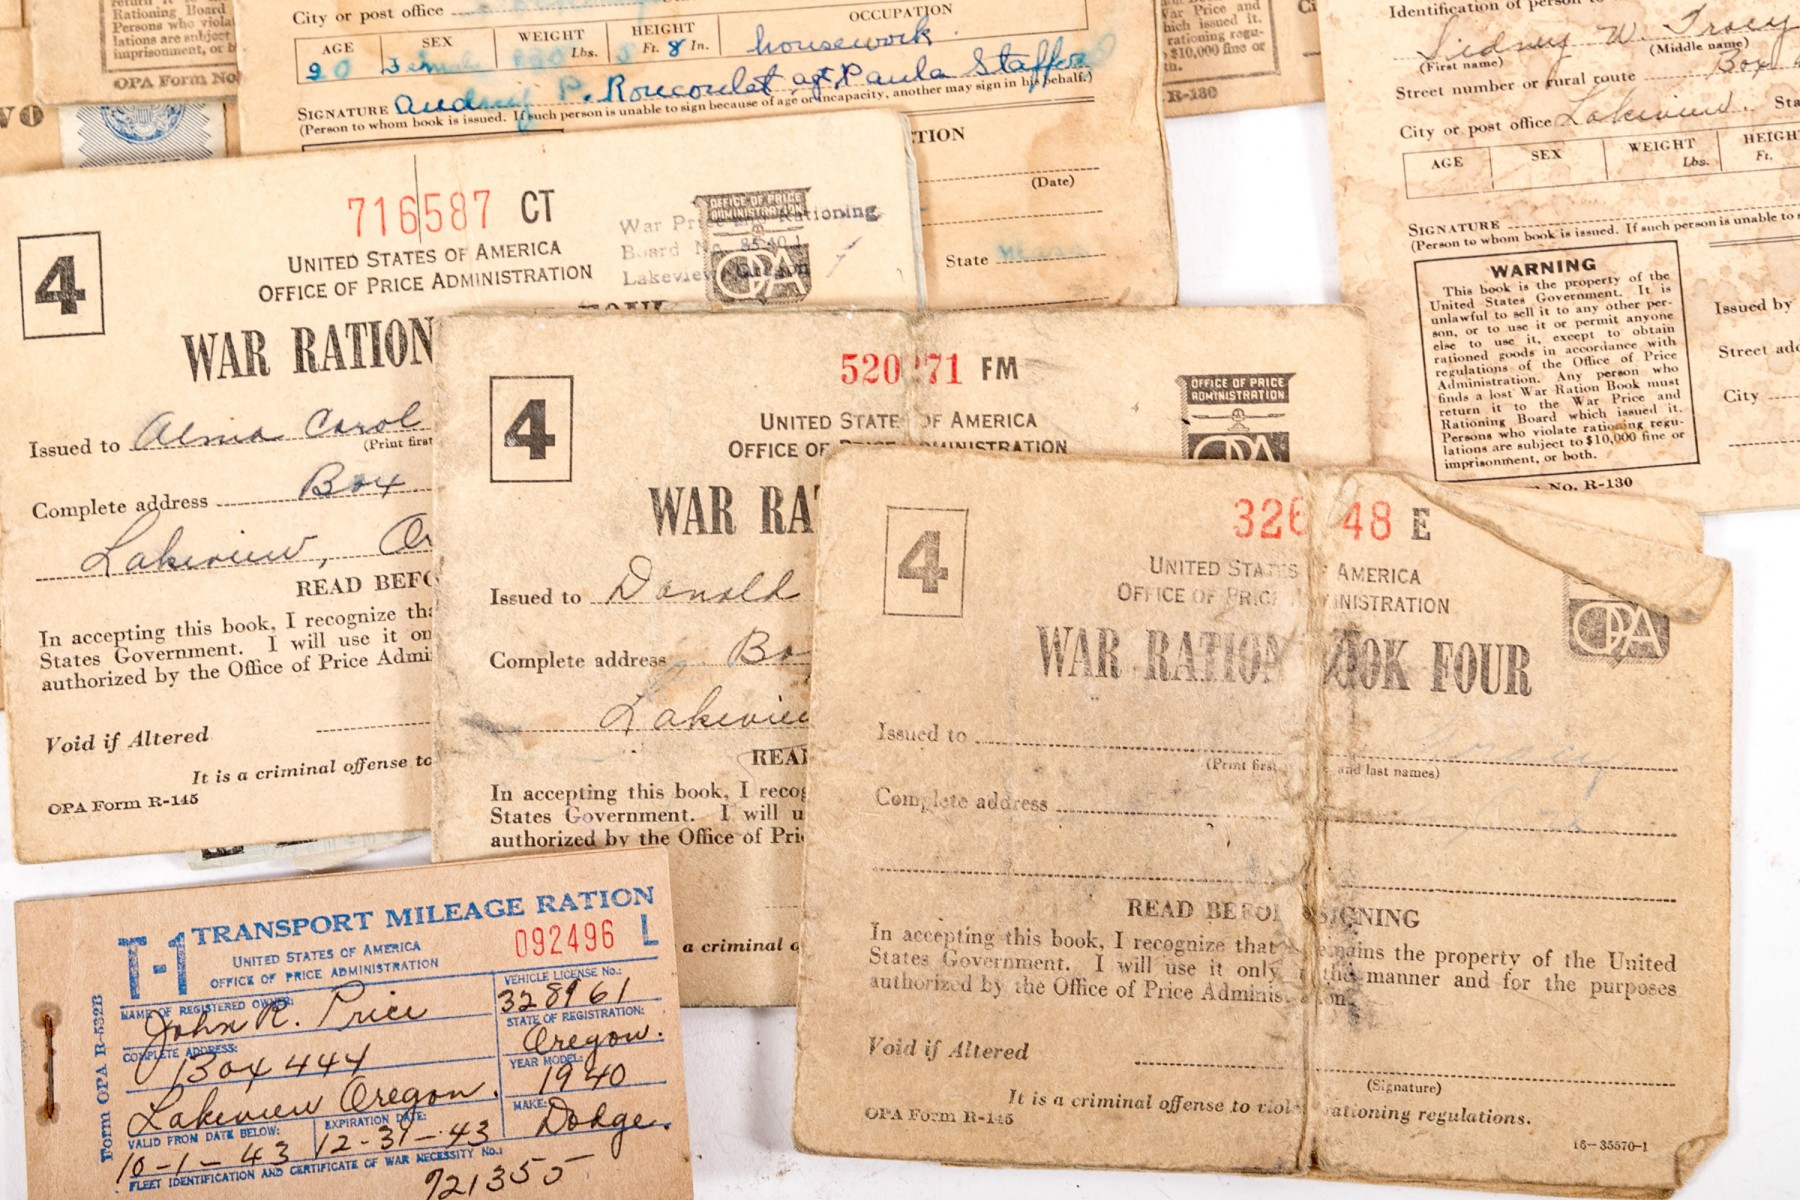 return it to
Rationing Board
Persons who viola
lations are subject
imprisonment, or b
OPA Form No
WO
City or post office
AGE SEX WEIGHT HEIGHT OCCUPATION
20 Female Lbs. 5 Ft. 8 In. housework.
SIGNATURE Audrey P. agt Paula Stafford
(Person to whom book is issued. If such person is unable to sign because of age or incapacity, another may sign in his behalf.)
TION
(Date)
State
War Price and
hich issued it.
rationing regu-
$10,000 fine or
th.
R-130
Ci
Identification of person to
Sidney W. Tracy
(First name) (Middle name)
Street number or rural route Box
City or post office Lakeview. Sta
AGE SEX WEIGHT HEIGH
Lbs. Ft.
SIGNATURE
(Person to whom book is issued. If such person is unable to s
WARNING
This book is the property of the
United States Government. It is
unlawful to sell it to any other per-
son, or to use it or permit anyone
else to use it, except to obtain
rationed goods in accordance with
regulations of the Office of Price
Administration. Any person who
finds a lost War Ration Book must
return it to the War Price and
Rationing Board which issued it.
Persons who violate rationing regu-
lations are subject to $10,000 fine or
imprisonment, or both.
No. R-130
Issued by
Street add
City
716587 CT
4
UNITED STATES OF AMERICA
OFFICE OF PRICE ADMINISTRATION
War Price and Rationing
Board No.
Lakeview, Oregon
OFFICE OF PRICE
ADMINISTRATION
OPA
WAR RATION
Issued to Alma Carol
(Print first
Complete address Box
Lakeview, Or
READ BEFO
In accepting this book, I recognize tha
States Government. I will use it on
authorized by the Office of Price Admi
Void if Altered
It is a criminal offense to
OPA Form R-145
520 71 FM
4
UNITED STATE OF AMERICA
OFFICE OF MINISTRATION
OFFICE OF PRICE
ADMINISTRATION
OPA
WAR RA
Issued to Donald
Complete address Bo
Lakeview
READ
In accepting this book, I recog
States Government. I will u
authorized by the Office of Pri
a criminal o
326 48 E
4
UNITED STATES F AMERICA
OFFICE OF PRICE MINISTRATION
OPA
WAR RATION BOOK FOUR
Issued to Tracy
(Print first and last names)
Complete address
READ BEFORE SIGNING
In accepting this book, I recognize that it remains the property of the United
States Government. I will use it only in the manner and for the purposes
authorized by the Office of Price Administration.
Void if Altered
(Signature)
It is a criminal offense to violate rationing regulations.
OPA Form R-145
16-35570-1
Form OPA R-532B
T-1 TRANSPORT MILEAGE RATION
UNITED STATES OF AMERICA
OFFICE OF PRICE ADMINISTRATION
092496 L
NAME OF REGISTERED OWNER:
John R. Price
COMPLETE ADDRESS:
Box 444
Lakeview Oregon.
VALID FROM DATE BELOW:
10-1-43
EXPIRATION DATE:
12-31-43
VEHICLE LICENSE NO.:
328961
STATE OF REGISTRATION:
Oregon.
YEAR MODEL:
1940
MAKE:
Dodge.
FLEET IDENTIFICATION AND CERTIFICATE OF WAR NECESSITY NO.:
721355